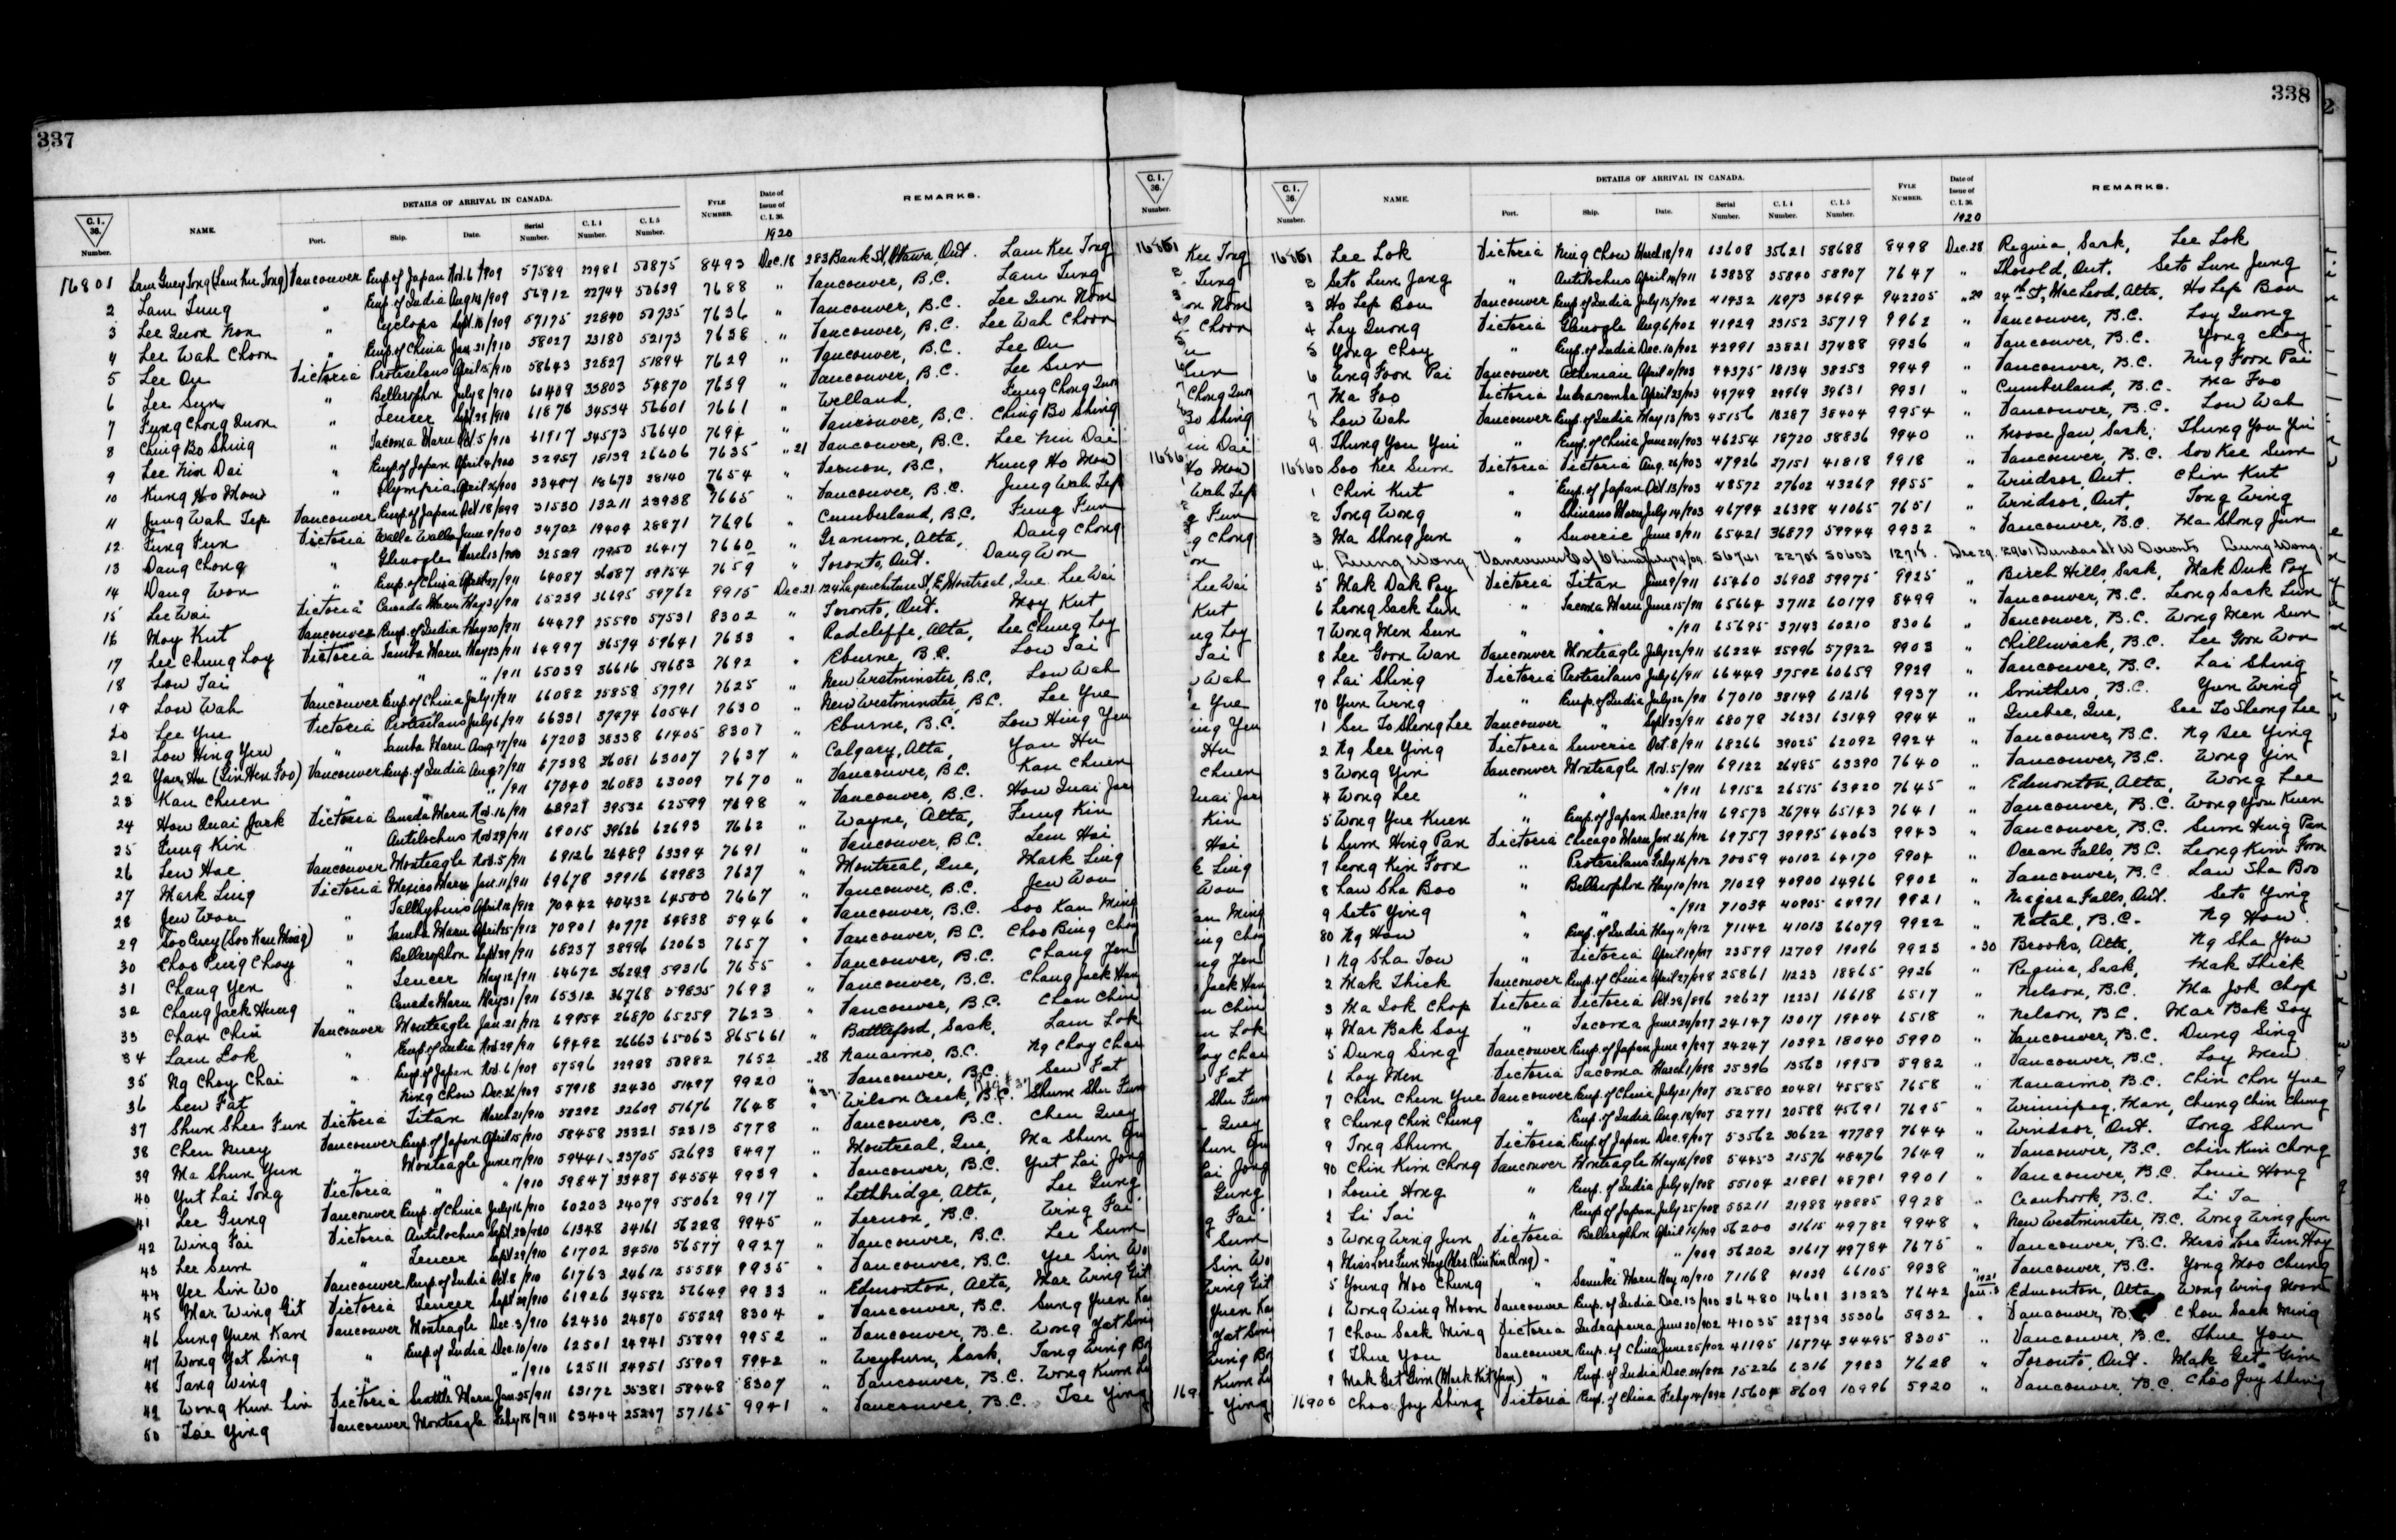 337
C.I. 36. Number.
NAME.
DETAILS OF ARRIVAL IN CANADA.
Port. Ship. Date. Serial Number. C.I.4 Number. C.I.5 Number.
FYLE NUMBER.
Date of Issue of C.I.36. 1920
REMARKS.
16801 Lam Guey Tong (Lam Kee Tong) Vancouver Emp. of Japan Nov. 6/909 57589 22981 50875 8493 Dec. 18 283 Bank St, Ottawa, Ont. Lam Kee Tong
2 Lam Tung " Emp. of India Aug 14/909 56912 22744 50639 7688 " Vancouver, B.C. Lam Tung
3 Lee Quon Non " Cyclops Sept. 18/909 57175 22840 50735 7636 " Vancouver, B.C. Lee Quon Nom
4 Lee Wah Choon " Emp. of China Jan. 21/910 58027 23180 52173 7638 " Vancouver, B.C. Lee Wah Choon
5 Lee On Victoria Protesilaus April 15/910 58643 32827 51894 7629 " Vancouver, B.C. Lee On
6 Lee Sun " Bellerophon July 8/910 60409 33803 54870 7639 " Vancouver, B.C. Lee Sun
7 Fung Chong Quon " Teucer Sept 29/910 61876 34534 56601 7661 " Welland, Fung Chong Quon
8 Ching Bo Shing " Tacoma Maru Oct. 5/910 61917 34573 56640 7694 " Vancouver, B.C. Ching Bo Shing
9 Lee Nin Dai " Emp. of Japan April 4/900 32957 18139 26606 7635 " 21 Vancouver, B.C. Lee Nin Dai
10 Kung Ho Mow " Olympia April 26/900 33407 18673 28140 7654 " Vernon, B.C. Kung Ho Mow
11 Jung Wah Jep Vancouver Emp. of Japan Oct 18/899 31530 13211 23938 7665 " Vancouver, B.C. Jung Wah Jep
12 Fung Fun Victoria Walla Walla June 9/900 34702 19404 28871 7696 " Cumberland, B.C. Fung Fun
13 Dang Chong " Glenogle March 13/900 32529 17950 26417 7660 " Granum, Alta, Dang Chong
14 Dang Won " Emp. of China April 27/911 64087 36087 59154 7659 " Toronto, Ont. Dang Won
15 Lee Wai Victoria Canada Maru May 31/911 65239 36695 59762 9915 Dec. 21 124 Lagauchetiere St, E, Montreal, Que Lee Wai
16 Moy Kut Vancouver Emp. of India May 20/911 64479 25590 57531 8302 " Toronto, Ont. Moy Kut
17 Lee Chung Loy Victoria Tamba Maru May 23/911 64997 36574 59641 7633 " Radcliffe, Alta, Lee Chung Loy
18 Low Tai " " "/911 65039 36616 59683 7692 " Eburne, B.C. Low Tai
19 Low Wah Vancouver Emp. of China July 1/911 66082 25858 57791 7625 " New Westminster, B.C. Low Wah
20 Lee Yue Victoria Protesilaus July 6/911 66331 37474 60541 7630 " New Westminster, B.C. Lee Yue
21 Low Hing Yew " Tamba Maru Aug 17/911 67203 38338 61405 8307 " Eburne, B.C. Low Hing Yew
22 Yow Hu (Lin Hen Foo) Vancouver Emp. of India Aug 7/911 67338 26081 63007 7637 " Calgary, Alta, Yow Hu
23 Kan Chuen " " "/911 67340 26083 63009 7670 " Vancouver, B.C. Kan Chuen
24 How Quai Jark Victoria Canada Maru Nov. 16/911 68921 39532 62599 7698 " Vancouver, B.C. How Quai Jar
25 Fung Kin " Antilochus Nov 29/911 69015 39626 62693 7662 " Wayne, Alta, Fung Kin
26 Lew Hoe Vancouver Monteagle Nov. 5/911 69126 26489 63394 7691 " Vancouver, B.C. Lem Hoi
27 Mark Ling Victoria Mexico Maru Jan. 11/911 69678 39916 62983 7627 " Montreal, Que, Mark Ling
28 Jew Won " Talthybius April 12/912 70442 40432 64500 7667 " Vancouver, B.C. Jew Won
29 Soo Cuey (Soo Kan Ming) " Tamba Maru April 25/912 70901 40772 64838 5946 " Vancouver, B.C. Soo Kan Ming
30 Choo Ping Choy " Bellerophon Sept 29/911 68237 38996 62063 7657 " Vancouver, B.C. Choo Bing Choy
31 Chang Yen " Teucer May 12/911 64672 36249 59316 7655 " Vancouver, B.C. Chang Jen
32 Chang Jack Hung " Canada Maru May 31/911 65312 36768 59835 7693 " Vancouver, B.C. Chang Jack Han
33 Chan Chin Vancouver Monteagle Jan. 21/912 69954 26870 65259 7623 " Vancouver, B.C. Chan Chin
34 Lam Lok " Emp. of India Nov. 29/911 69492 26663 65063 865661 " Battleford, Sask, Lam Lok
35 Ng Choy Chai " Emp. of Japan Nov. 6/909 57596 22988 50882 7652 " 28 Nanaimo, B.C. Ng Choy Chai
36 Sew Fat " Ning Chow Dec. 26/909 57918 32430 51497 9920 " Vancouver, B.C. Sew Fat
37 Shun Shee Fun Victoria Titan March 21/910 58292 32609 51676 7648 " Wilson Creek, B.C. Shum Shu Fun
38 Chen Quey Vancouver Emp. of Japan April 15/910 58458 23321 52313 5778 " Vancouver, B.C. Chen Quey
39 Ma Shun Yun " Monteagle June 17/910 59441 23705 52693 8497 " Montreal, Que, Ma Shun Yun
40 Yut Lai Tong Victoria " "/910 59847 33487 54554 9939 " Vancouver, B.C. Yut Lai Jong
41 Lee Gung Vancouver Emp. of China July 16/910 60203 24079 55062 9917 " Lethbridge, Alta, Lee Gung
42 Wing Fai Victoria Antilochus Sept. 28/910 61348 34161 56228 9945 " Vernon, B.C. Wing Fai
43 Lee Sum " Teucer Sept 29/910 61702 34510 56577 9927 " Vancouver, B.C. Lee Sum
44 Yee Sin Wo Vancouver Emp. of India Oct. 8/910 61763 24612 55584 9935 " Vancouver, B.C. Yee Sin Wo
45 Mar Wing Git Victoria Teucer Sept 29/910 61926 34582 56649 9933 " Edmonton, Alta, Mar Wing Git
46 Sung Yuen Kam Vancouver Monteagle Dec. 3/910 62430 24870 55829 8304 " Vancouver, B.C. Sung Yuen Kam
47 Wong Yat Sing " Emp. of India Dec. 10/910 62501 24941 55899 9952 " Vancouver, B.C. Wong Yat Sing
48 Tang Wing " " "/910 62511 24951 55909 9942 " Weyburn, Sask, Tang Wing Bo
49 Wong Kum Lin Victoria Seattle Maru Jan. 25/911 63172 35381 58448 8307 " Vancouver, B.C. Wong Kum Li
50 Tse Ying Vancouver Monteagle Feby 18/911 63404 25207 57165 9941 " Vancouver, B.C. Tse Ying
338
C.I. 36. Number.
NAME.
DETAILS OF ARRIVAL IN CANADA.
Port. Ship. Date. Serial Number. C.I.4 Number. C.I.5 Number.
FYLE NUMBER.
Date of Issue of C.I.36. 1920
REMARKS.
16851 Lee Lok Victoria Ning Chow March 18/911 63608 35621 58688 8498 Dec. 28 Regina, Sask, Lee Lok
2 Seto Lun Jang " Antilochus April 14/911 63838 35840 58907 7647 " Thorold, Ont. Seto Lun Jung
3 Ho Lep Bon Vancouver Emp. of India July 13/902 41432 16973 34694 942205 " 29 24th St, MacLeod, Alta, Ho Lep Bon
4 Loy Quong Victoria Glenogle Aug. 6/902 41929 23152 35719 9962 " Vancouver, B.C. Loy Quong
5 Yong Choy " Emp. of India Dec. 10/902 42991 23821 37488 9936 " Vancouver, B.C. Yong Choy
6 Ung Foon Pai Vancouver Athenian April 11/903 44375 18134 38253 9949 " Vancouver, B.C. Nug Foon Pai
7 Ma Foo Victoria Indrasamha April 23/903 44749 24964 39631 9931 " Cumberland, B.C. Ma Foo
8 Low Wah Vancouver Emp. of India May 13/903 45156 18287 38404 9954 " Vancouver, B.C. Low Wah
9 Thung You Yui " Emp. of China June 24/903 46254 18720 38836 9940 " Moose Jaw, Sask, Thung You Yui
16860 Soo Kee Sum Victoria Victoria Aug. 26/903 47926 27151 41818 9918 " Vancouver, B.C. Soo Kee Sum
1 Chin Kut " Emp. of Japan Oct 13/903 48572 27602 43269 9955 " Windsor, Ont. Chin Kut
2 Tong Wong " Shinano Maru July 14/903 46794 26398 41065 7651 " Windsor, Ont, Tong Wing
3 Ma Shong Jun " Suveric June 8/911 65421 36877 59944 9932 " Vancouver, B.C. Ma Shong Jun
4 Leung Wong Vancouver E of China July 14/09 56741 22708 50603 12918 Dec 29. 2961 Dundas St W Toronto Leung Wong.
5 Mak Dak Poy Victoria Titan June 9/911 65460 36908 59975 9925 " Birch Hills, Sask, Mak Duk Poy
6 Leong Sack Lun " Tacoma Maru June 15/911 65664 37112 60179 8499 " Vancouver, B.C. Leong Sack Lun
7 Wong Men Sun " " "/911 65695 37143 60210 8306 " Vancouver, B.C. Wong Men Sun
8 Lee Goon Wan Vancouver Monteagle July 22/911 66224 25996 57922 9903 " Chilliwack, B.C. Lee Goon Won
9 Lai Shing Victoria Protesilaus July 6/911 66449 37592 60659 9929 " Vancouver, B.C. Lai Shing
70 Yun Wing " Emp. of India July 26/911 67010 38149 61216 9937 " Smithers, B.C. Yun Wing
1 See To Sheong Lee Vancouver " Sept 23/911 68078 26231 63149 9944 " Quebec, Que, See To Sheong Lee
2 Ng See Ying Victoria Suveric Oct. 8/911 68266 39025 62092 9924 " Vancouver, B.C. Ng See Ying
3 Wong Yin Vancouver Monteagle Nov. 5/911 69122 26485 63390 7640 " Vancouver, B.C. Wong Yin
4 Wong Lee " " "/911 69152 26515 63420 7645 " Edmonton, Alta, Wong Lee
5 Wong Yue Kuen " Emp. of Japan Dec. 22/911 69573 26744 65143 7641 " Vancouver, B.C. Wong You Kuen
6 Sum Hing Pan Victoria Chicago Maru Jan. 26/912 69757 39995 64063 9943 " Vancouver, B.C. Sum Hing Pan
7 Leong Kin Foon " Protesilaus Feby 16/912 70059 40102 64170 9904 " Ocean Falls, B.C. Leong Kim Foon
8 Law Sha Boo " Bellerophon May 10/912 71029 40900 64966 9902 " Vancouver, B.C. Law Sha Boo
9 Seto Ying " " "/912 71034 40905 64971 9921 " Niagara Falls, Ont. Seto Ying
80 Ng How " Emp. of India May 11/912 71142 41013 66079 9922 " Natal, B.C. Ng How
1 Ng Sha Tow " Victoria April 19/897 23579 12709 19096 9923 " 30 Brooks, Alta, Ng Sha You
2 Mak Thick Vancouver Emp. of China April 27/898 25861 11223 18865 9926 " Regina, Sask, Mak Thick
3 Ma Jok Chop Victoria Victoria Oct. 28/896 22627 12231 16618 6517 " Nelson, B.C. Ma Jok Chop
4 Mar Bak Soy " Tacoma June 24/897 24147 13017 19404 6518 " Nelson, B.C. Mar Bak Soy
5 Dung Sing Vancouver Emp. of Japan June 9/897 24247 10392 18040 5990 " Vancouver, B.C. Dung Sing
6 Loy Men Victoria Tacoma March 1/898 25396 13563 19950 5982 " Vancouver, B.C. Loy Men
7 Chin Chun Yue Vancouver Emp. of China July 21/907 52580 20481 45585 7658 " Nanaimo, B.C. Chin Chon Yue
8 Chung Chin Chung " Emp. of India Aug. 18/907 52771 20588 45691 7695 " Winnipeg, Man, Chung Chin Chung
9 Tong Shum Victoria Emp. of Japan Dec. 9/907 53562 30622 47789 7644 " Windsor, Ont. Tong Shun
90 Chin Kim Chong Vancouver Monteagle May 16/908 54453 21576 48476 7649 " Vancouver, B.C. Chin Kim Chong
1 Louie Hong " Emp. of India July 4/908 55104 21881 48781 9901 " Vancouver, B.C. Louie Hong
2 Li Tai " Emp. of Japan July 25/908 55211 21988 48885 9928 " Cranbrook, B.C. Li Ta
3 Wong Wing Jun Victoria Bellerophon April 16/909 56200 31615 49782 9948 " New Westminster, B.C. Wong Wing Jun
4 Miss Loo Fun Hay (Mrs. Chin Kin Chong) " " "/909 56202 31617 49784 7675 " Vancouver, B.C. Miss Loo Fun Hoy
5 Young Moo Chung " Sanuki Maru May 10/910 71168 41039 66105 9938 " Vancouver, B.C. Yong Moo Chung
6 Wong Wing Moon Vancouver Emp. of India Dec. 13/900 36480 14601 31323 7642 1921 Jan. 3 Edmonton, Alta, Wong Wing Moon
7 Chou Sack Ming Victoria Indrapura June 20/902 41035 22739 35306 5932 " Vancouver, B.C. Chou Sack Ming
8 Thue You Vancouver Emp. of China June 25/902 41195 16774 34495 8305 " Vancouver, B.C. Thue You
9 Mak Get Gim (Mark Kit Yam) " Emp. of India Dec. 24/892 15226 6316 7983 7628 " Toronto, Ont. Mak Get Gim
16900 Choo Joy Shing Victoria Emp. of China Feby 14/892 15604 8609 10996 5920 " Vancouver, B.C. Choo Joy Shing